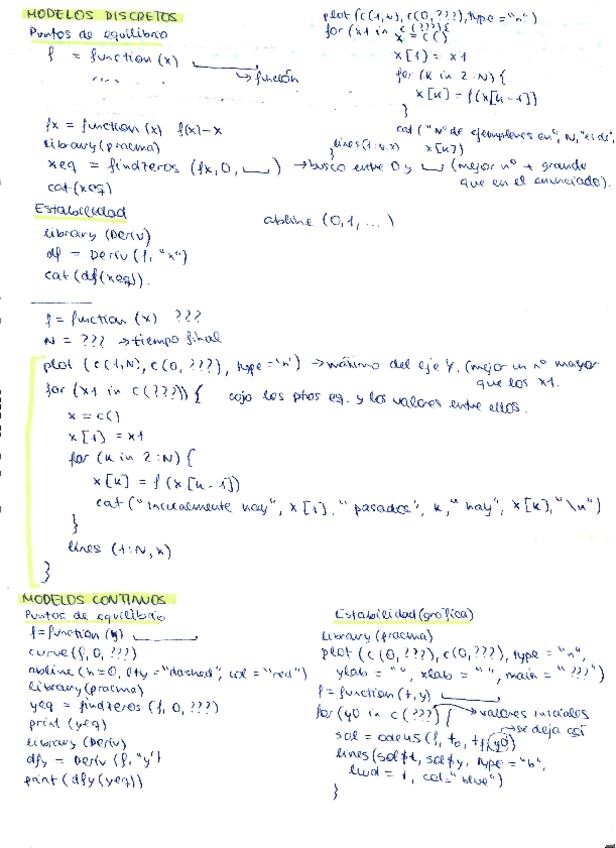 MODELOS DISCRETOS
Puntos de equilibrio
f = function (x) ______
→ función
.... ....
fx = function (x) f(x)-x
library(pracma)
xeq = findzeros (fx, 0, __) → busco entre 0 y __ (mejor nº + grande
que en el enunciado).
cat(xeq)
plot(c(1,N),c(0,???),type="n")
for (x1 in c(???)){
x = c()
x[1] = x1
for (k in 2:N){
x[k] = f(x[k-1])
}
cat("Nº de ejemplares en", N, "es de",
x[k])
lines(1:N,x)
}
Estabilidad
library (Deriv)
df = Deriv (f, "x")
cat (df(xeq)).
abline (0,1,...)
f = function (x) ???
N = ??? → tiempo final
plot (c(1,N), c(0,???), type="n") → máximo del eje Y. (mejor un nº mayor
que los x1.
for (x1 in c(???)) { cojo los ptos eq. y los valores entre ellos.
x = c()
x[1] = x1
for (k in 2:N) {
x[k] = f(x[k-1])
cat ("Inicialmente hay", x[1], "pasados", k, "hay", x[k], "\n")
}
lines (1:N, x)
}
MODELOS CONTINUOS
Puntos de equilibrio
f=function(y) ______
curve(f, 0, ???)
abline (h=0, lty="dashed", col="red")
library(pracma)
yeq = findzeros (f, 0, ???)
print (yeq)
library (Deriv)
dfy = Deriv (f, "y")
print (dfy(yeq))
Estabilidad (gráfica)
library(pracma)
plot (c(0,???), c(0,???), type = "n",
ylab = " ", xlab = " ", main = "???")
f = function (t,y) ______
for (y0 in c(???) { → valores iniciales
→ se deja así
sol = ode45 (f, t0, tf, y0)
lines(sol$t, sol$y, type = "b",
lwd = 1, col="blue")
}